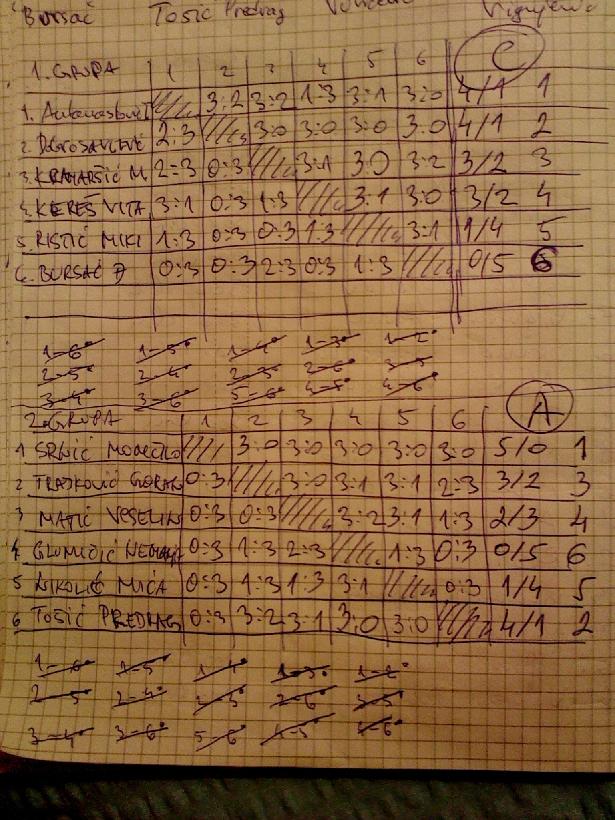 Bursać Tosić Predrag
C
1. GRUPA 1 2 3 4 5 6
1. 3:2 3:2 1:3 3:1 3:0 4/1 1
2. 2:3 3:0 3:0 3:0 3:0 4/1 2
3. M. 2:3 0:3 3:1 3:0 3:2 3/2 3
4. KEREŠ VITA 3:1 0:3 1:3 3:1 3:0 3/2 4
5. RISTIĆ MIKI 1:3 0:3 0:3 1:3 3:1 1/4 5
6. BURSAĆ 0:3 0:3 2:3 0:3 1:3 0/5 6
1-6 1-5 1-4 1-3 1-2
2-5 2-4 2-3 2-6 3-5
3-4 3-6 5-6 4-5 4-6
A
2. GRUPA 1 2 3 4 5 6
1 3:0 3:0 3:0 3:0 3:0 5/0 1
2 TRAJKOVIĆ GORAN 0:3 3:0 3:1 3:1 2:3 3/2 3
3 MATIĆ VESELIN 0:3 0:3 3:2 3:1 1:3 2/3 4
4. 0:3 1:3 2:3 1:3 0:3 0/5 6
5 NIKOLIĆ MIĆA 0:3 1:3 1:3 3:1 0:3 1/4 5
6 TOSIĆ PREDRAG 0:3 3:2 3:1 3:0 3:0 4/1 2
1-6 1-5 1-4 1-3 1-2
2-5 2-4 2-3 2-6 3-5
3-4 3-6 5-6 4-5 4-6